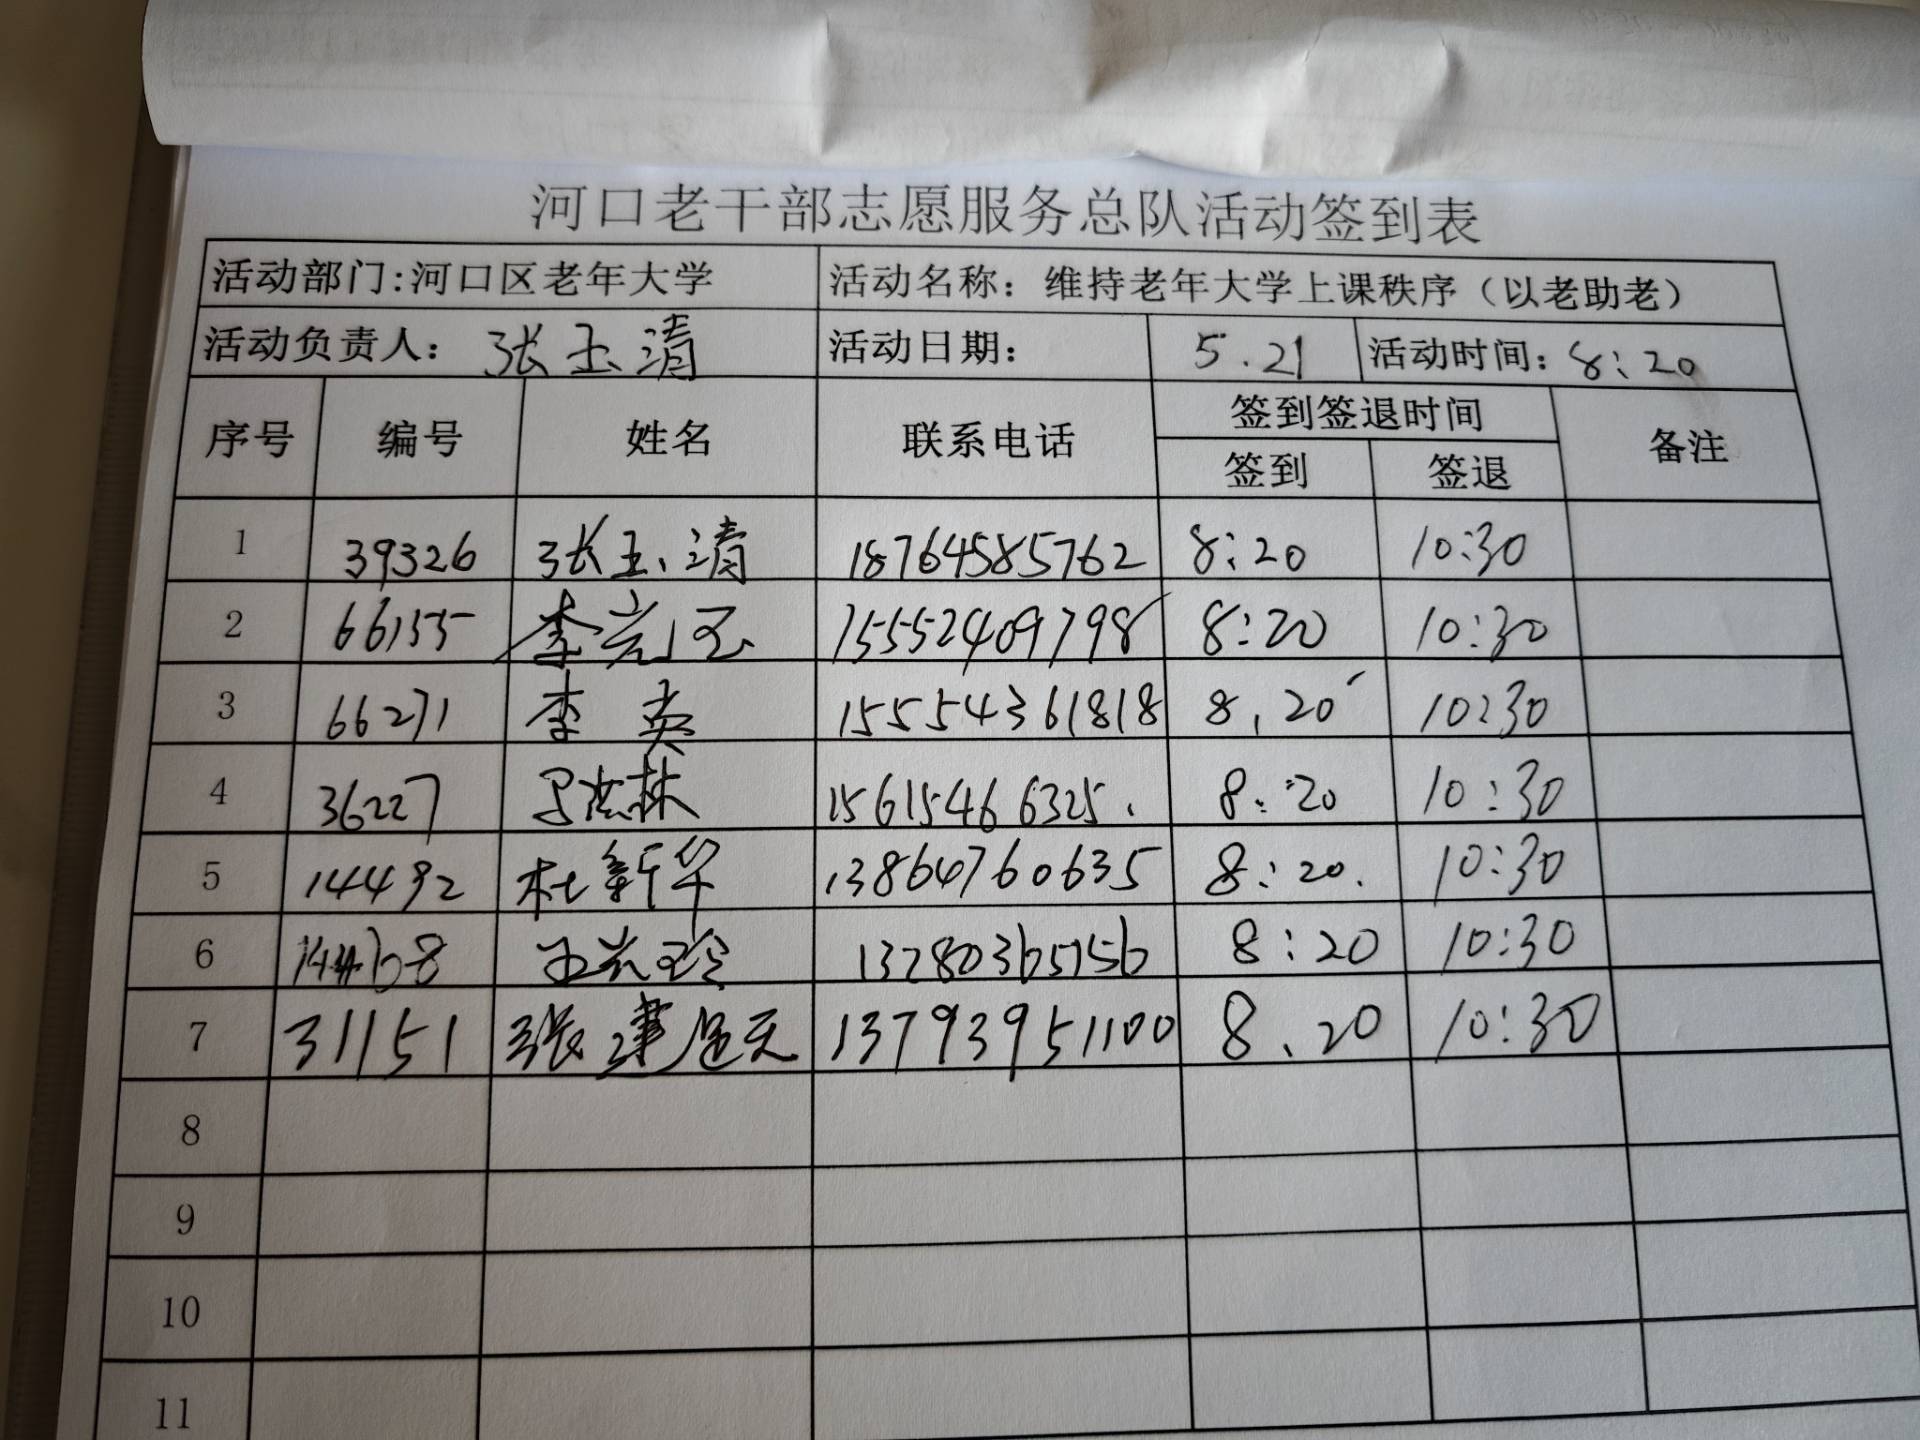 河口老干部志愿服务总队活动签到表
活动部门:河口区老年大学 活动名称：维持老年大学上课秩序（以老助老）
活动负责人：张玉清 活动日期： 5.21 活动时间：8:20
序号 编号 姓名 联系电话 签到签退时间 备注
签到 签退
1 39326 张玉清 18764585762 8:20 10:30
2 66155 李 玉 15552409798 8:20 10:30
3 66271 李英 15554361818 8.20 10:30
4 36227 林 15615466325. 8:20 10:30
5 14492 杜新华 13864760635 8:20. 10:30
6 王兴玲 13780365756 8:20 10:30
7 31151 张 13793951100 8.20 10:30
8
9
10
11